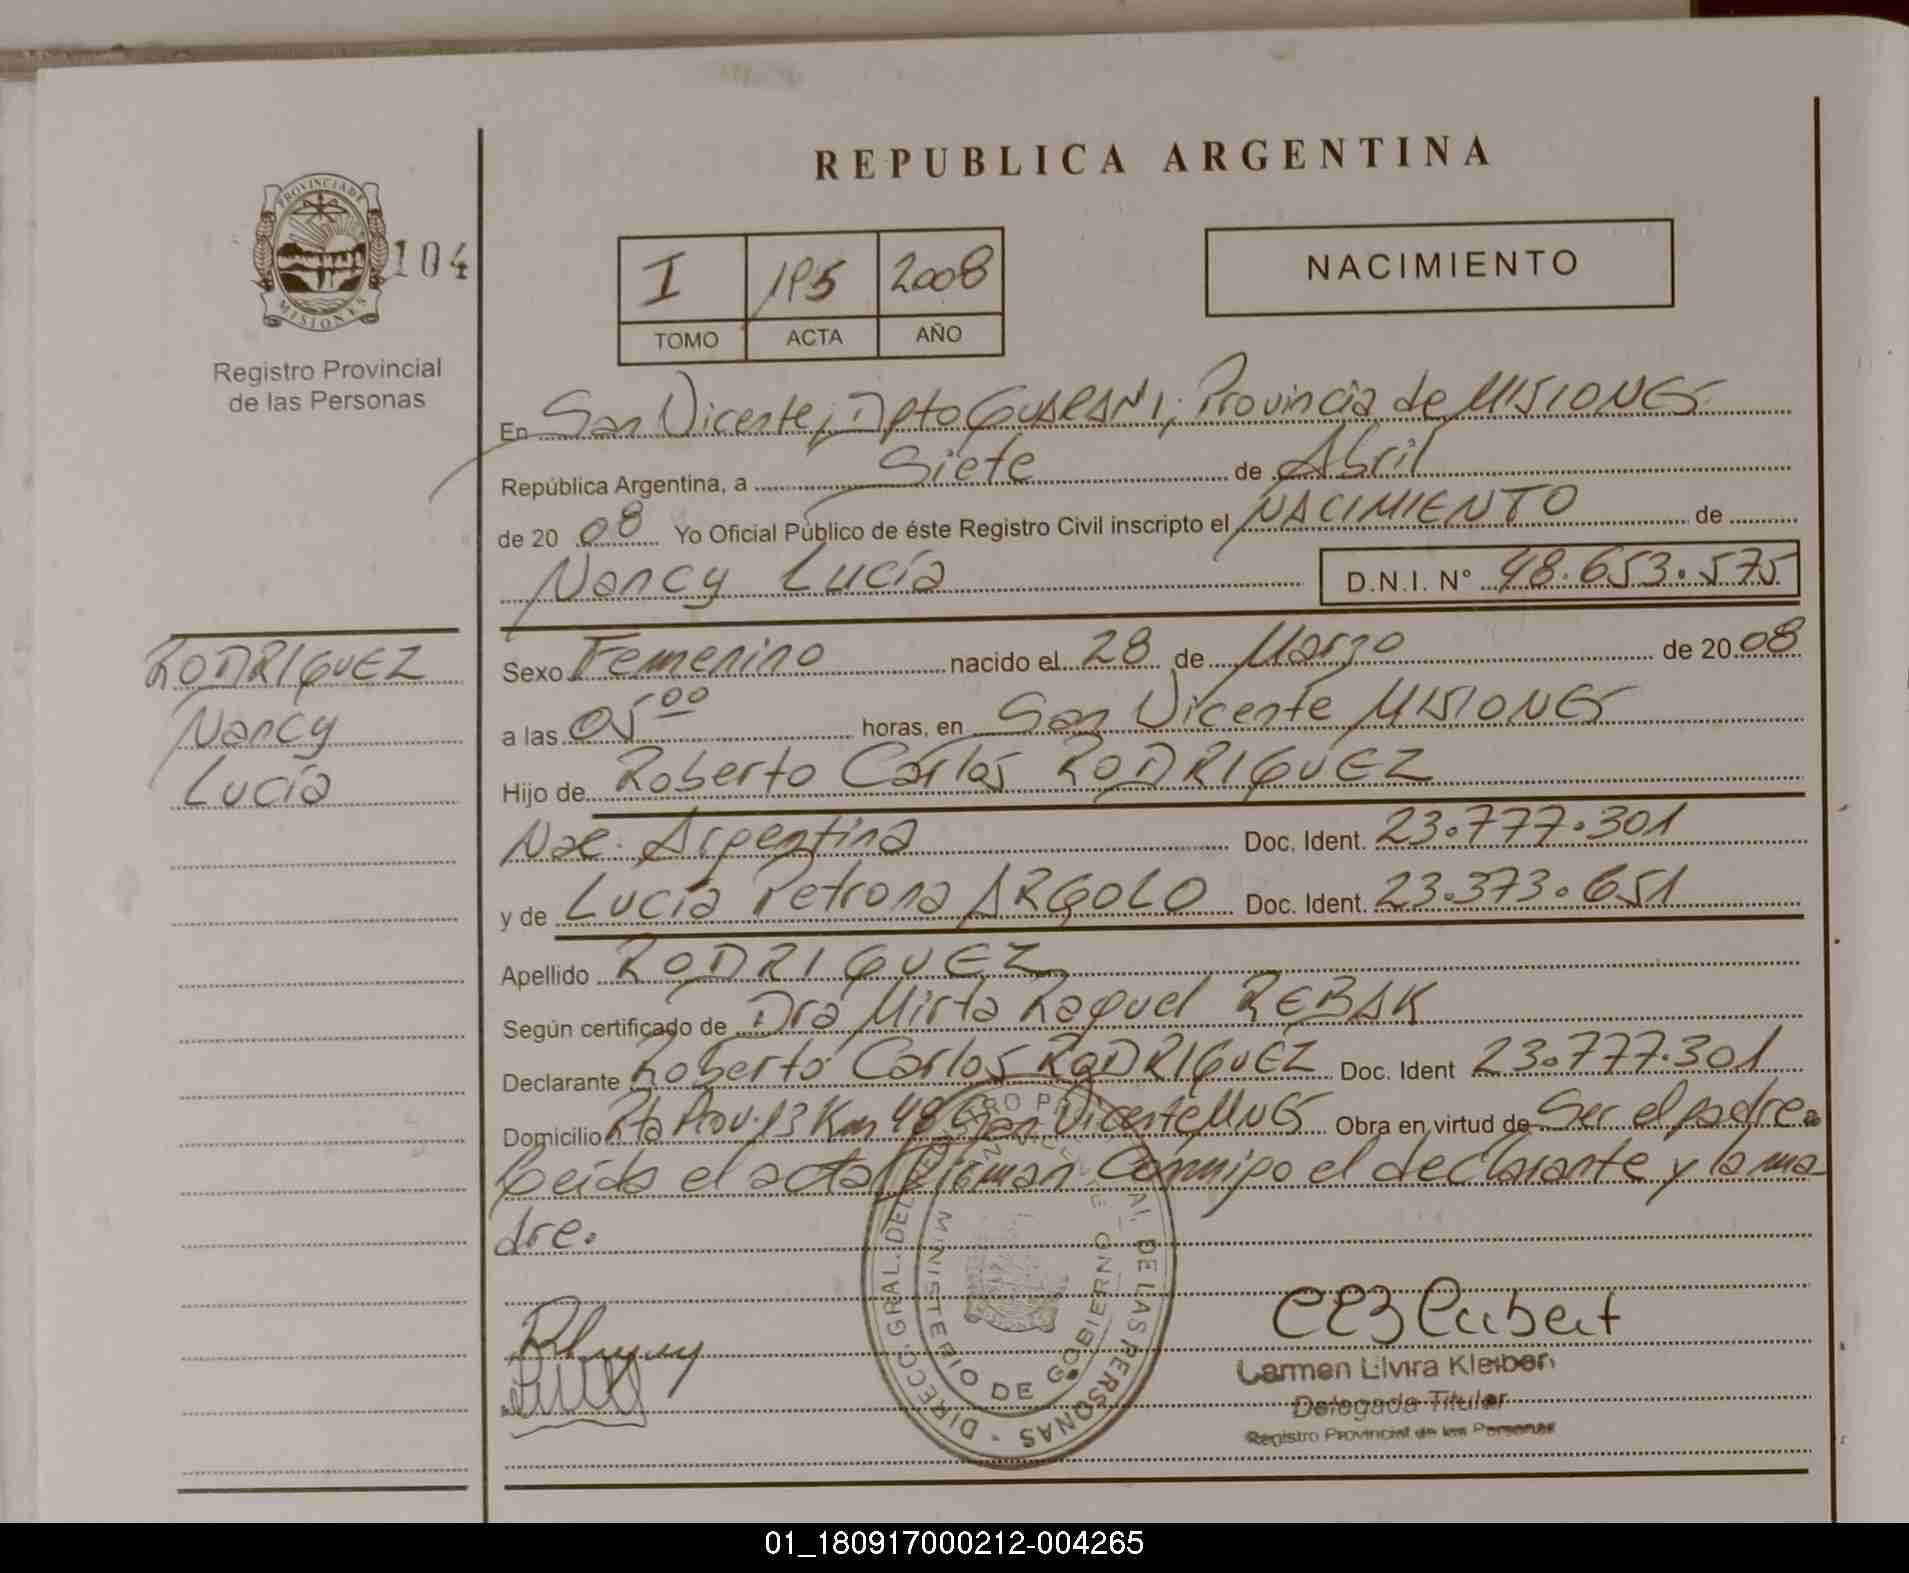 REPUBLICA ARGENTINA
PROVINCIA DE
MISIONES
104
Registro Provincial
de las Personas
I 2008
TOMO ACTA AÑO
NACIMIENTO
En San Vicente, Dpto GUARANI, Provincia de MISIONES
República Argentina, a Siete de Abril
de 2008 Yo Oficial Público de éste Registro Civil inscripto el NACIMIENTO de
Nancy Lucía D.N.I. N° 48.653.575
RODRIGUEZ
Nancy
Lucía
Sexo Femenino nacido el 28 de Marzo de 2008
a las 05 00 horas, en San Vicente MISIONES
Hijo de Roberto Carlos RODRIGUEZ
Nac. Argentina Doc. Ident. 23.777.301
y de Lucía Petrona ARGOLO Doc. Ident. 23.373.651
Apellido RODRIGUEZ
Según certificado de Dra Mirta Raquel REBAK
Declarante Roberto Carlos RODRIGUEZ Doc. Ident 23.777.301
Domicilio Rta Prov. 13 Km 48 San Vicente MNES Obra en virtud de Ser el padre.
Leída el acta firman Conmigo el declarante y la ma
dre.
DIRECC. GRAL. DEL REGISTRO PROVINCIAL DE LAS PERSONAS
MINISTERIO DE GOBIERNO
Carmen Elvira Kleiber
Delegada Titular
Registro Provincial de las Personas
01_180917000212-004265